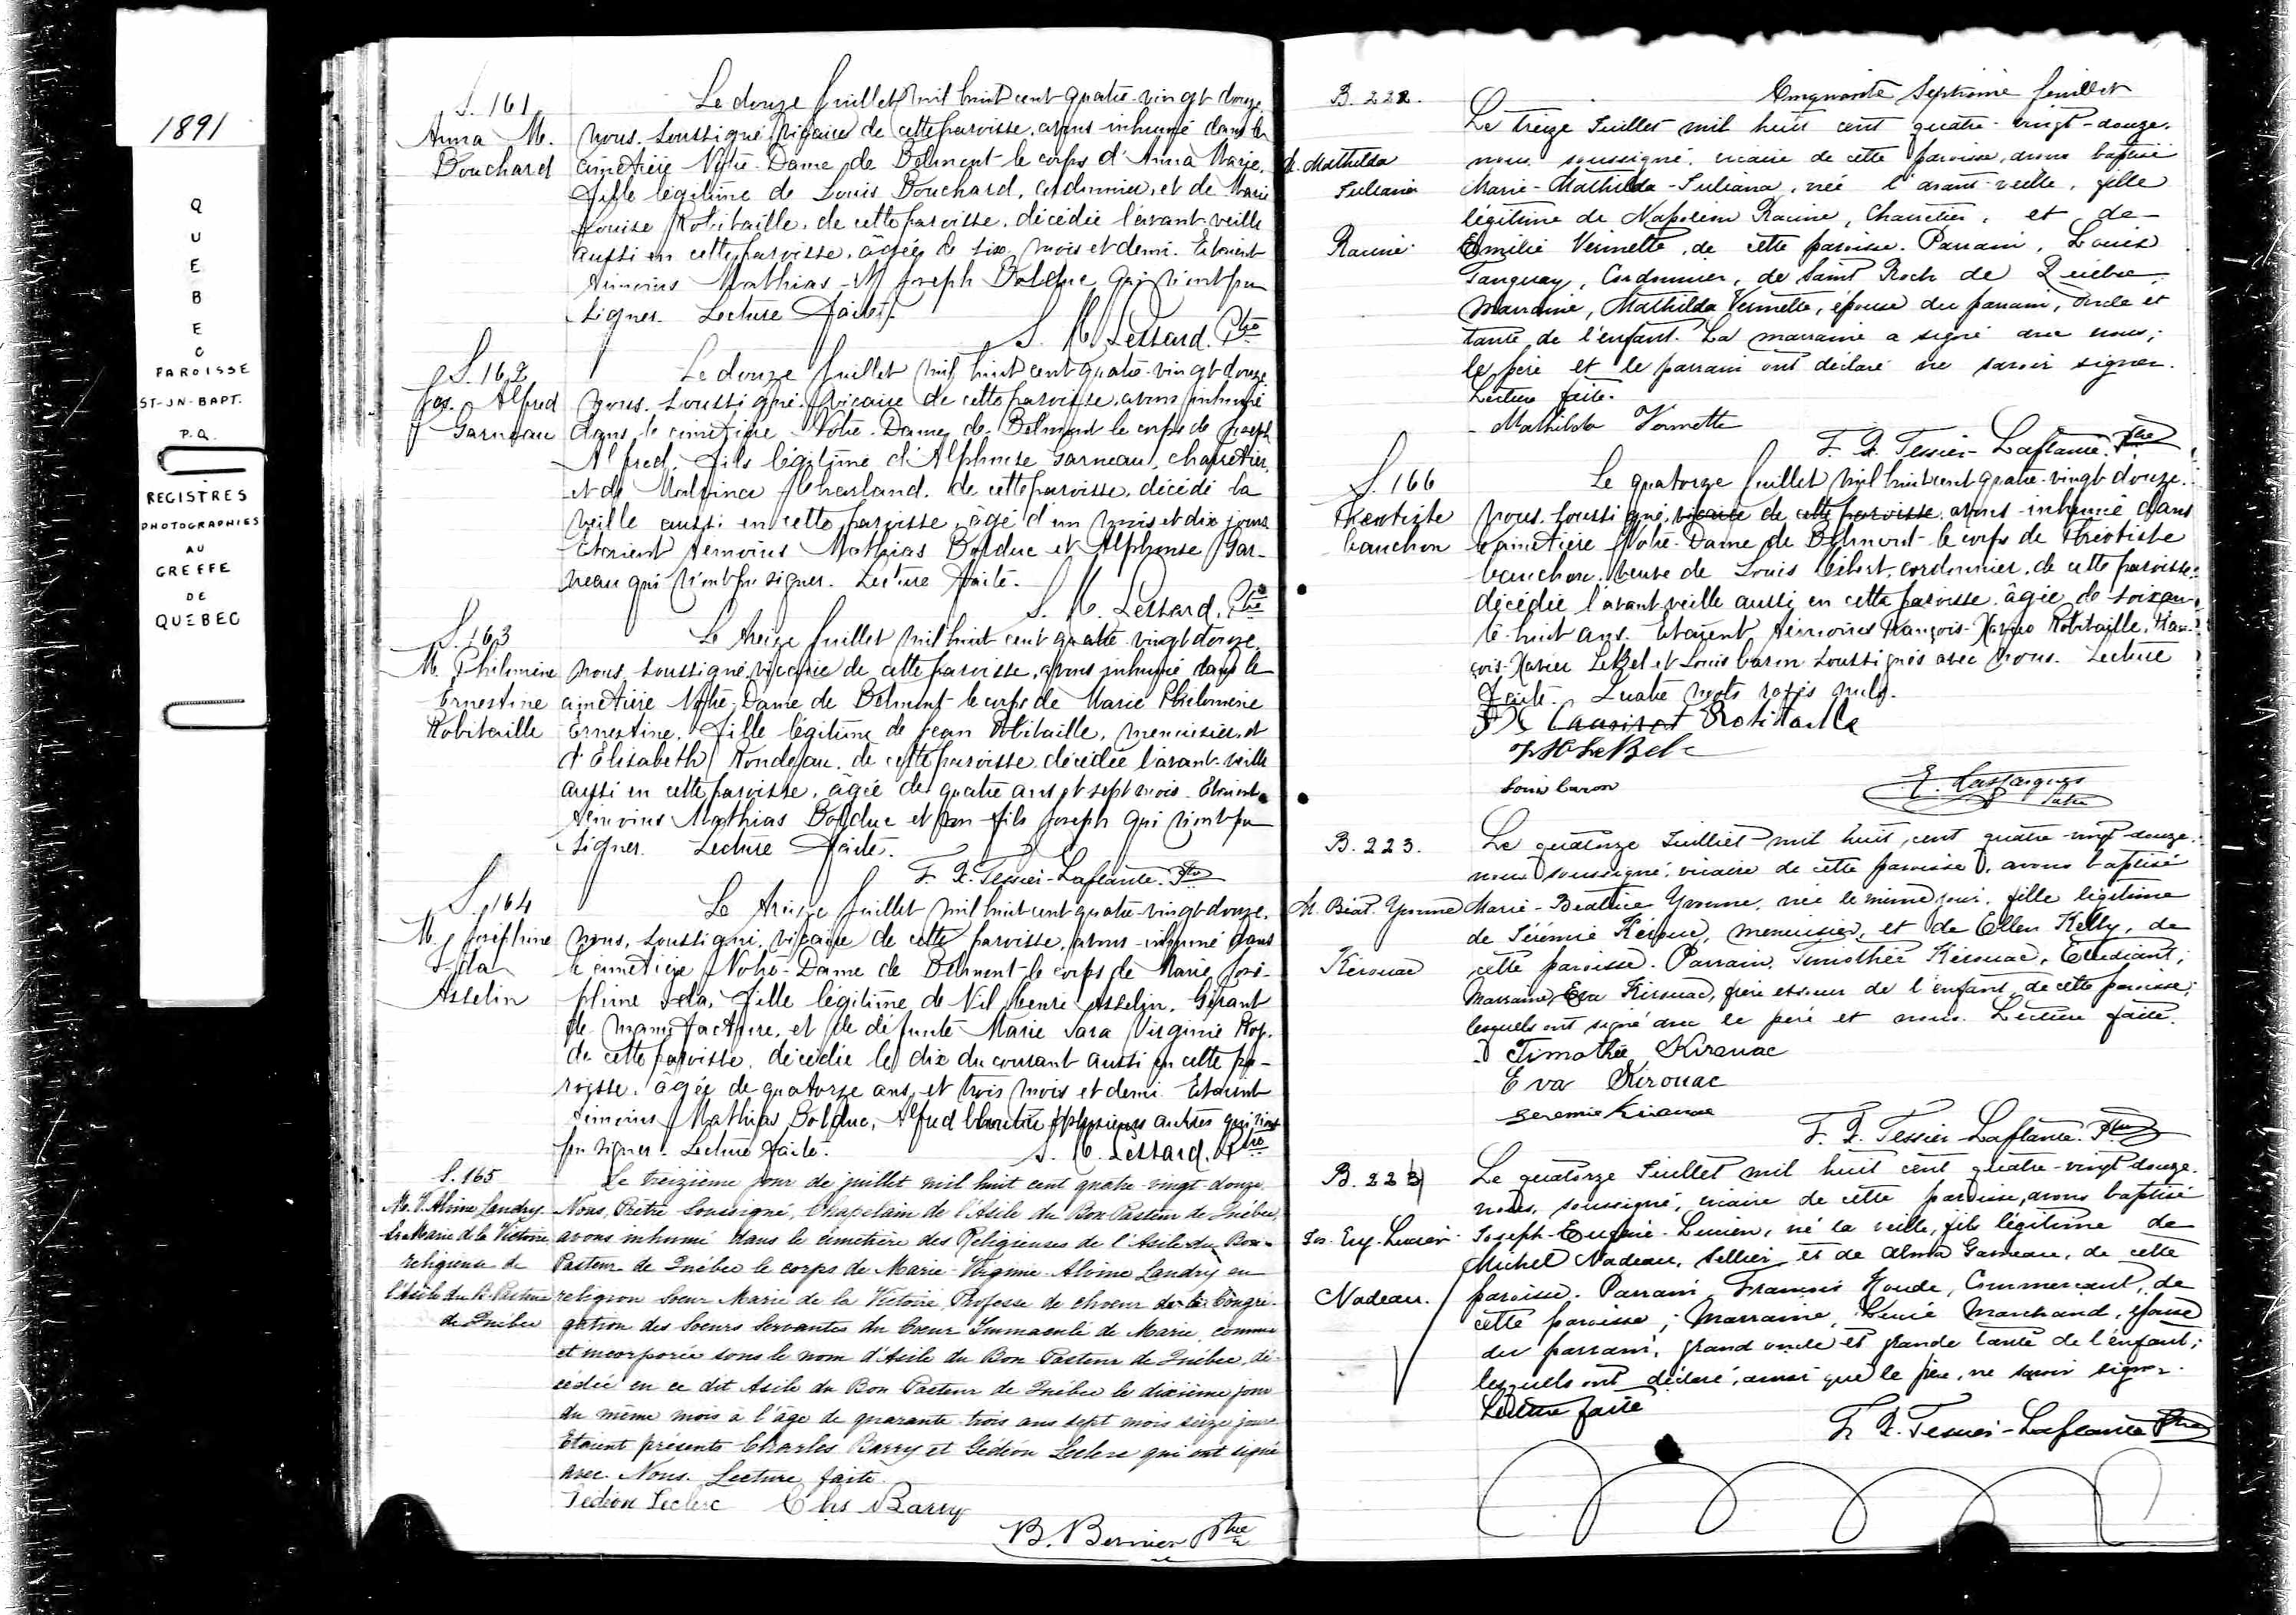 1891
QUEBEC
PAROISSE
ST-JN-BAPT.
P.Q.
REGISTRES
PHOTOGRAPHIES
AU
GREFFE
DE
QUEBEC
S. 161
Anna M.
Bouchard
Le douze Juillet mil huit cent quatre-vingt douze
nous, soussigné, vicaire de cette paroisse, avons inhumé dans le
cimetière Notre-Dame de Belmont le corps d'Anna Marie,
fille légitime de Louis Bouchard, cordonnier, et de Marie
Louise Robitaille, de cette paroisse, décédée l'avant-veille
aussi en cette paroisse, âgée de six mois et demi. Etaient
témoins Mathias & Joseph Bolduc qui n'ont pu
signer. Lecture faite.
S. C. Lessard. Ptre
S. 162
Jos. Alfred
Garneau
Le douze Juillet mil huit cent quatre-vingt douze
nous, soussigné, vicaire de cette paroisse, avons inhumé
dans le cimetière Notre-Dame de Belmont le corps de Joseph
Alfred, fils légitime d'Alphonse Garneau, charretier,
et de Malvina Cherland, de cette paroisse, décédé la
veille aussi en cette paroisse, âgé d'un mois et dix jours
Etaient témoins Mathias Bolduc et Alphonse Gar-
neau qui n'ont pu signer. Lecture faite.
S. C. Lessard. Ptre
S. 163
M. Philomène
Ernestine
Robitaille
Le treize Juillet mil huit cent quatre-vingt douze
nous, soussigné, vicaire de cette paroisse, avons inhumé dans le
cimetière Notre-Dame de Belmont le corps de Marie Philomène
Ernestine, fille légitime de Jean Robitaille, menuisier, et
d'Elisabeth Rondeau, de cette paroisse, décédée l'avant-veille
aussi en cette paroisse, âgée de quatre ans et sept mois. Etaient
témoins Mathias Bolduc et son fils Joseph qui n'ont pu
signer. Lecture faite.
F. X. Tessier-Laflamme. Ptre
S. 164
M. Joséphine
Ida
Asselin
Le treize Juillet mil huit cent quatre-vingt douze,
nous, soussigné, vicaire de cette paroisse, avons inhumé dans
le cimetière Notre-Dame de Belmont le corps de Marie José-
phine Ida, fille légitime de Nil Henri Asselin, Gérant
de manufacture, et de défunte Marie Sara Virginie
de cette paroisse, décédée le dix du courant aussi en cette pa-
roisse, âgée de quatorze ans et trois mois et demi. Etaient
témoins Mathias Bolduc, Alfred Cloutier & plusieurs autres qui n'ont
pu signer. Lecture faite.
S. C. Lessard. Ptre
S. 165
M. V. Alvine Landry
Sr. Marie de la Victoire
religieuse de
l'Asile du B. Pasteur
de Québec
Le treizième jour de juillet mil huit cent quatre-vingt-douze
Nous, Prêtre Soussigné, Chapelain de l'Asile du Bon Pasteur de Québec,
avons inhumé dans le cimetière des Religieuses de l'Asile du Bon
Pasteur de Québec le corps de Marie-Virginie-Alvine Landry en
religion Soeur Marie de la Victoire Professe de choeur de la Congré-
gation des Soeurs Servantes du Coeur Immaculé de Marie, connue
et incorporée sous le nom d'Asile du Bon Pasteur de Québec, dé-
cédée en ce dit Asile du Bon Pasteur de Québec le dixième jour
du même mois à l'âge de quarante-trois ans sept mois seize jours
Etaient présents Charles Barry et Gédéon Leclerc qui ont signé
avec Nous. Lecture faite.
Gédéon Leclerc Chs Barry
B. Bernier Ptre
Cinquante Septième feuillet
B. 222.
M. Mathilda
Juliana
Racine
Le treize Juillet mil huit cent quatre-vingt-douze,
nous soussigné, vicaire de cette paroisse, avons baptisé
Marie-Mathilda-Juliana, née l'avant-veille, fille
légitime de Napoléon Racine, Charretier, et de
Emilie Vermette, de cette paroisse. Parrain, Louis
Tanguay, Cordonnier, de Saint Roch de Québec.
Marraine, Mathilda Vermette, épouse du parrain, oncle et
tante de l'enfant. La marraine a signé avec nous;
le père et le parrain ont déclaré ne savoir signer.
Lecture faite.
Mathilda Vermette
F. X. Tessier-Laflamme. Ptre
S. 166
Théotiste
Cauchon
Le quatorze Juillet mil huit cent quatre-vingt douze
nous, soussigné, vicaire de cette paroisse, avons inhumé dans
le cimetière Notre-Dame de Belmont le corps de Théotiste
Cauchon, veuve de Louis Hébert, cordonnier, de cette paroisse,
décédée l'avant-veille aussi en cette paroisse, âgée de soixan-
te-huit ans. Etaient témoins François-Xavier Robitaille, Fran-
çois-Xavier LeBel et Louis Caron soussignés avec nous. Lecture
faite. Quatre mots rayés nuls.
F X Robitaille
F X LeBel
Louis Caron
Ptre
B. 223.
M. Béat. Yvonne
Kérouac
Le quatorze Juillet mil huit cent quatre-vingt-douze.
nous soussigné, vicaire de cette paroisse, avons baptisé
Marie-Béatrice Yvonne, née le même jour, fille légitime
de Jérémie Kérouac, menuisier, et de Ellen Kelly, de
cette paroisse. Parrain, Timothée Kérouac, Etudiant;
Marraine, Eva Kirouac, frère et soeur de l'enfant, de cette paroisse;
lesquels ont signé avec le père et nous. Lecture faite.
Timothée Kirouac
Eva Kirouac
Jeremie Kirouac
F. X. Tessier-Laflamme. Ptre
B. 224
Jos. Eug. Lucien
Nadeau.
Le quatorze Juillet mil huit cent quatre-vingt douze.
nous, soussigné, vicaire de cette paroisse, avons baptisé
Joseph-Eugène-Lucien, né la veille, fils légitime de
Michel Nadeau, Sellier et de Alma Garneau, de cette
paroisse. Parrain François Houde, Commerçant, de
cette paroisse; Marraine, Marchand, épouse
du parrain, grand oncle et grande tante de l'enfant;
lesquels ont déclaré, ainsi que le père, ne savoir signer.
Lecture faite
F. X. Tessier-Laflamme Ptre